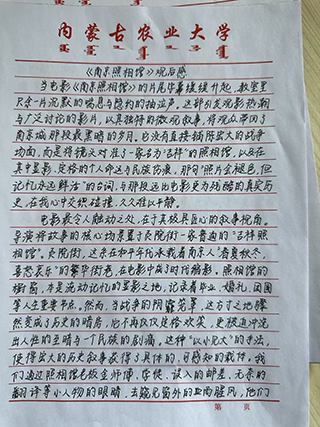 内蒙古农业大学
《南京照相馆》观后感
当电影《南京照相馆》的片尾字幕缓缓升起，教室里
只余一片沉默的喘息与隐约的抽泣声。这部引发观影热潮
与广泛讨论的影片，以其独特的微观叙事，将观众带回了
南京城那段最黑暗的岁月。它没有直接铺陈宏大的战争
场面，而是将镜头对准了一家名为“吉祥”的照相馆，以及在
其中显影、定格的个人命运与民族伤痕，那句“照片会褪色，但
记忆永远鲜活”的台词，与那段比电影更为残酷的真实历
史，在我心中交织碰撞，久久难以平静。
电影最令人触动之处，在于其极具匠心的叙事视角。
导演将故事的核心场景置于长院街一家普通的“吉祥照
相馆”。长院街，这条在和平年代承载着南京人“看夏秋冬、
喜怒哀乐”的繁华街巷，在电影中成了时代缩影。照相馆的
橱窗，本是流动记忆的显影之地，记录着毕业、婚礼、团圆
等人生重要节点。然而，当战争的阴霾笼罩，这方寸之地骤
然变成了历史的暗房，它不再仅仅定格欢笑，更被迫冲洗
出人性的至暗与一个民族的剧痛。这种“以小见大”的手法，
使得宏大的历史叙事获得了具体的、可感知的载体。我
们透过照相馆老板金师傅、学徒、误入的邮差、无奈的
翻译等小人物的眼睛，去窥见窗外的血雨腥风，他们
第 页